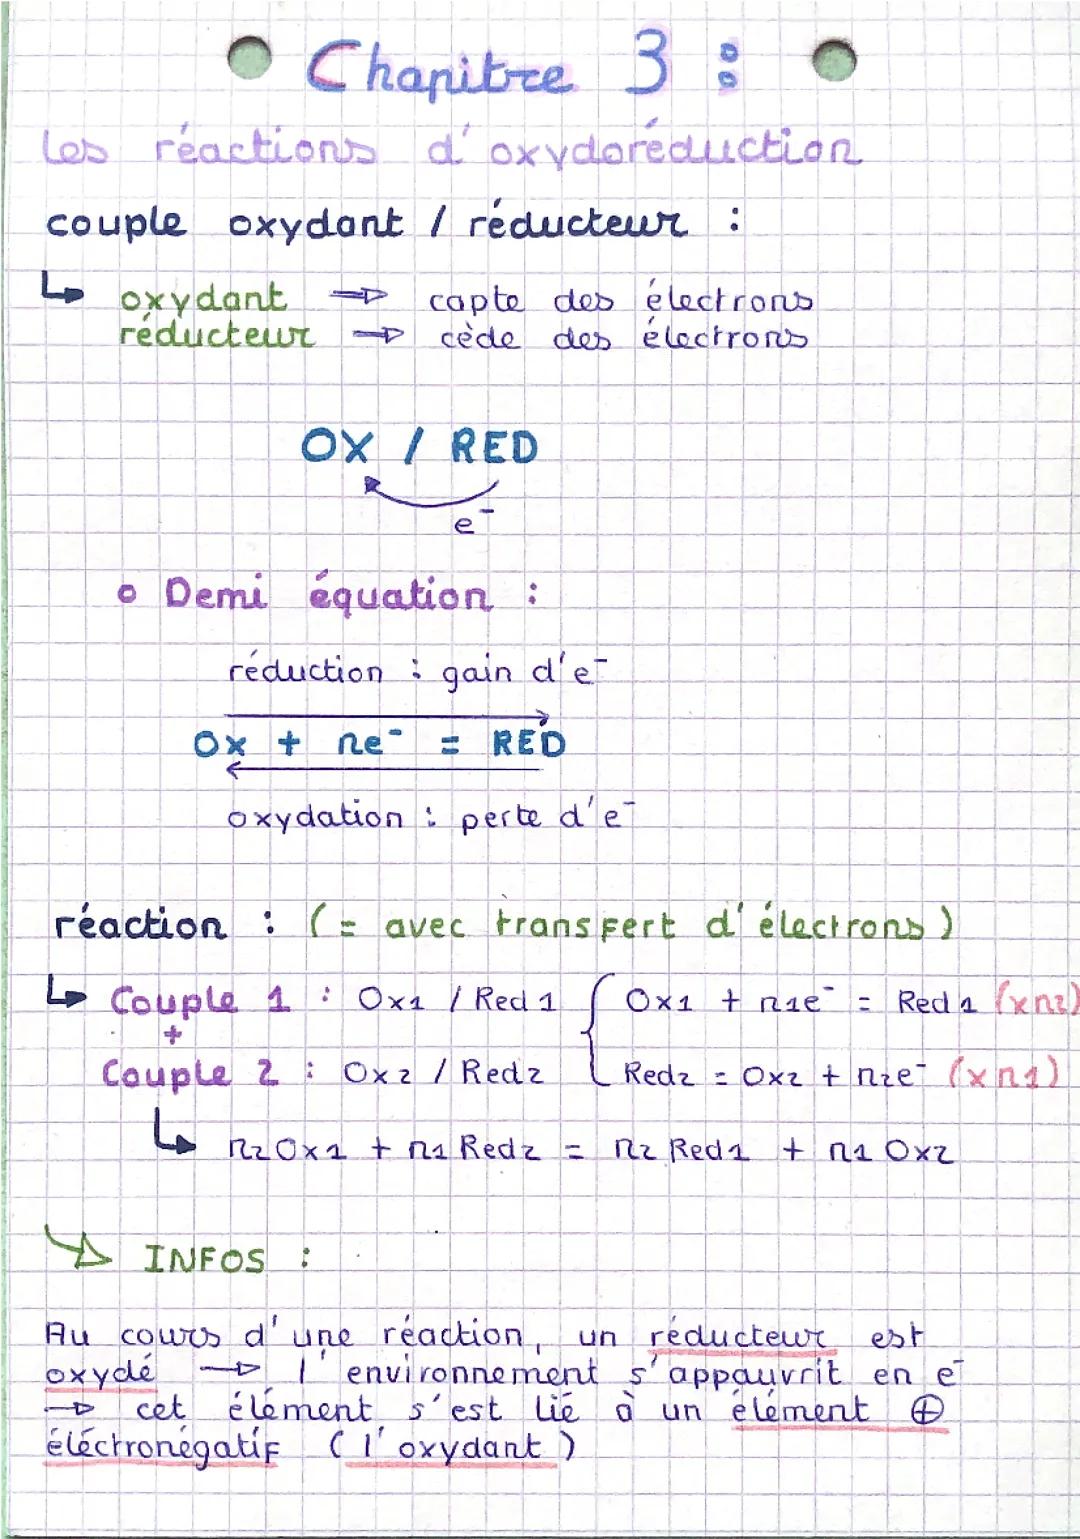 Chapitre 3 :
les réactions d'oxydoréduction
couple oxydant / réducteur :
↳ oxydant ⇒ capte des électrons
réducteur ⇒ cède des électrons
OX / RED
e⁻
• Demi équation :
réduction : gain d'e⁻
Ox + ne⁻ = RED
oxydation : perte d'e⁻
réaction : (= avec transfert d'électrons)
↳ Couple 1 : Ox1 / Red1 { Ox1 + n1e⁻ = Red1 (xn2)
+
Couple 2 : Ox2 / Red2 Red2 = Ox2 + n2e⁻ (xn1)
↳ n2Ox1 + n1 Red2 = n2 Red1 + n1 Ox2
→ INFOS :
Au cours d'une réaction, un réducteur est
oxydé → l'environnement s'appauvrit en e⁻
→ cet élément s'est lié à un élément ⊕
éléctronégatif (l'oxydant)